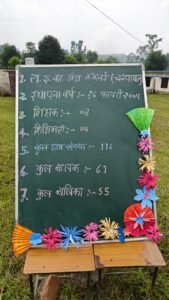 1. रा. इ. का.
2. स्थापना वर्ष :- 26 फरवरी 2009
3. शिक्षक :- 08
4. शिक्षिकाएँ :- 04
5. कुल छात्र संख्या :- 116
6. कुल बालक :- 61
7. कुल बालिका :- 55